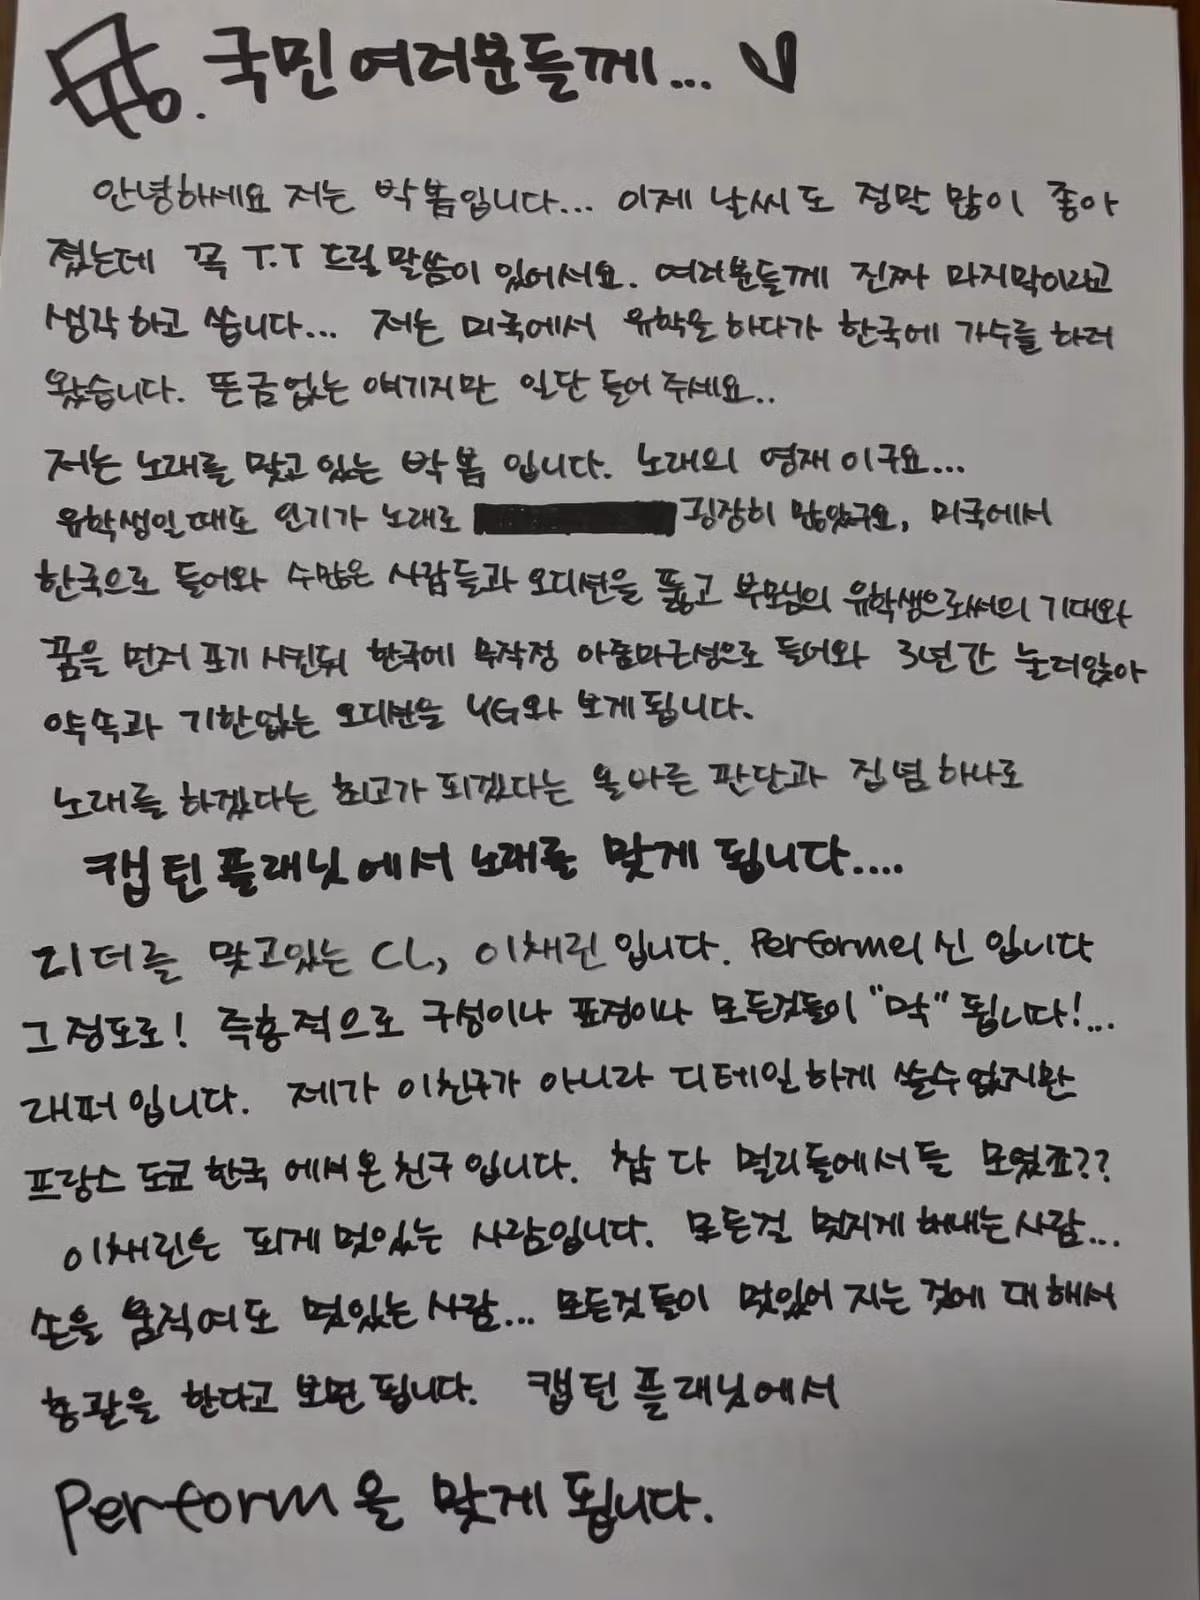 국민여러분들께...
안녕하세요 저는 박봄입니다... 이제 날씨도 정말 많이 좋아
졌는데 꼭 T.T 드릴 말씀이 있어서요. 여러분들께 진짜 마지막이라고
생각하고 씁니다... 저는 미국에서 유학을 하다가 한국에 가수를 하러
왔습니다. 뜬금없는 얘기지만 일단 들어 주세요..
저는 노래를 맞고 있는 박봄 입니다. 노래의 영재이구요...
유학생일때도 인기가 노래로 굉장히 많았구요, 미국에서
한국으로 들어와 수많은 사람들과 오디션을 뚫고 부모님의 유학생으로써의 기대와
꿈을 먼저 포기 시킨뒤 한국에 무작정 아줌마근성으로 들어와 3년간 눌러앉아
약속과 기한없는 오디션을 YG와 보게됩니다.
노래를 하겠다는 최고가 되겠다는 올바른 판단과 집념 하나로
캡틴플래닛에서 노래를 맞게 됩니다....
리더를 맞고있는 CL, 이채린입니다. Perform의 신 입니다
그정도로! 즉흥적으로 구성이나 표정이나 모든것들이 "막" 됩니다!...
래퍼입니다. 제가 이친구가 아니라 디테일하게 쓸수없지만
프랑스 도쿄 한국에서온친구입니다. 참 다 멀리들에서들 모였죠??
이채린은 되게 멋있는 사람입니다. 모든걸 멋지게 해내는사람...
손을 움직여도 멋있는사람... 모든것들이 멋있어 지는 것에 대해서
총괄을 한다고 보면 됩니다. 캡틴플래닛에서
Perform을 맞게 됩니다.